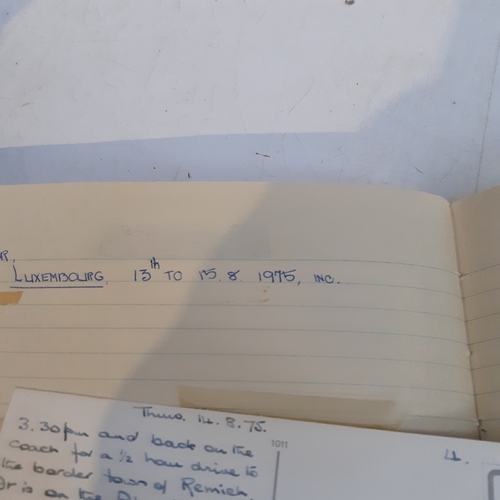 LUXEMBOURG, 13th TO 15.8.1975, INC.
Thurs. 14.8.75.
3.30pm and back on the
coach for a ½ hour drive to
the border town of Remich.
is on the
1011
4.